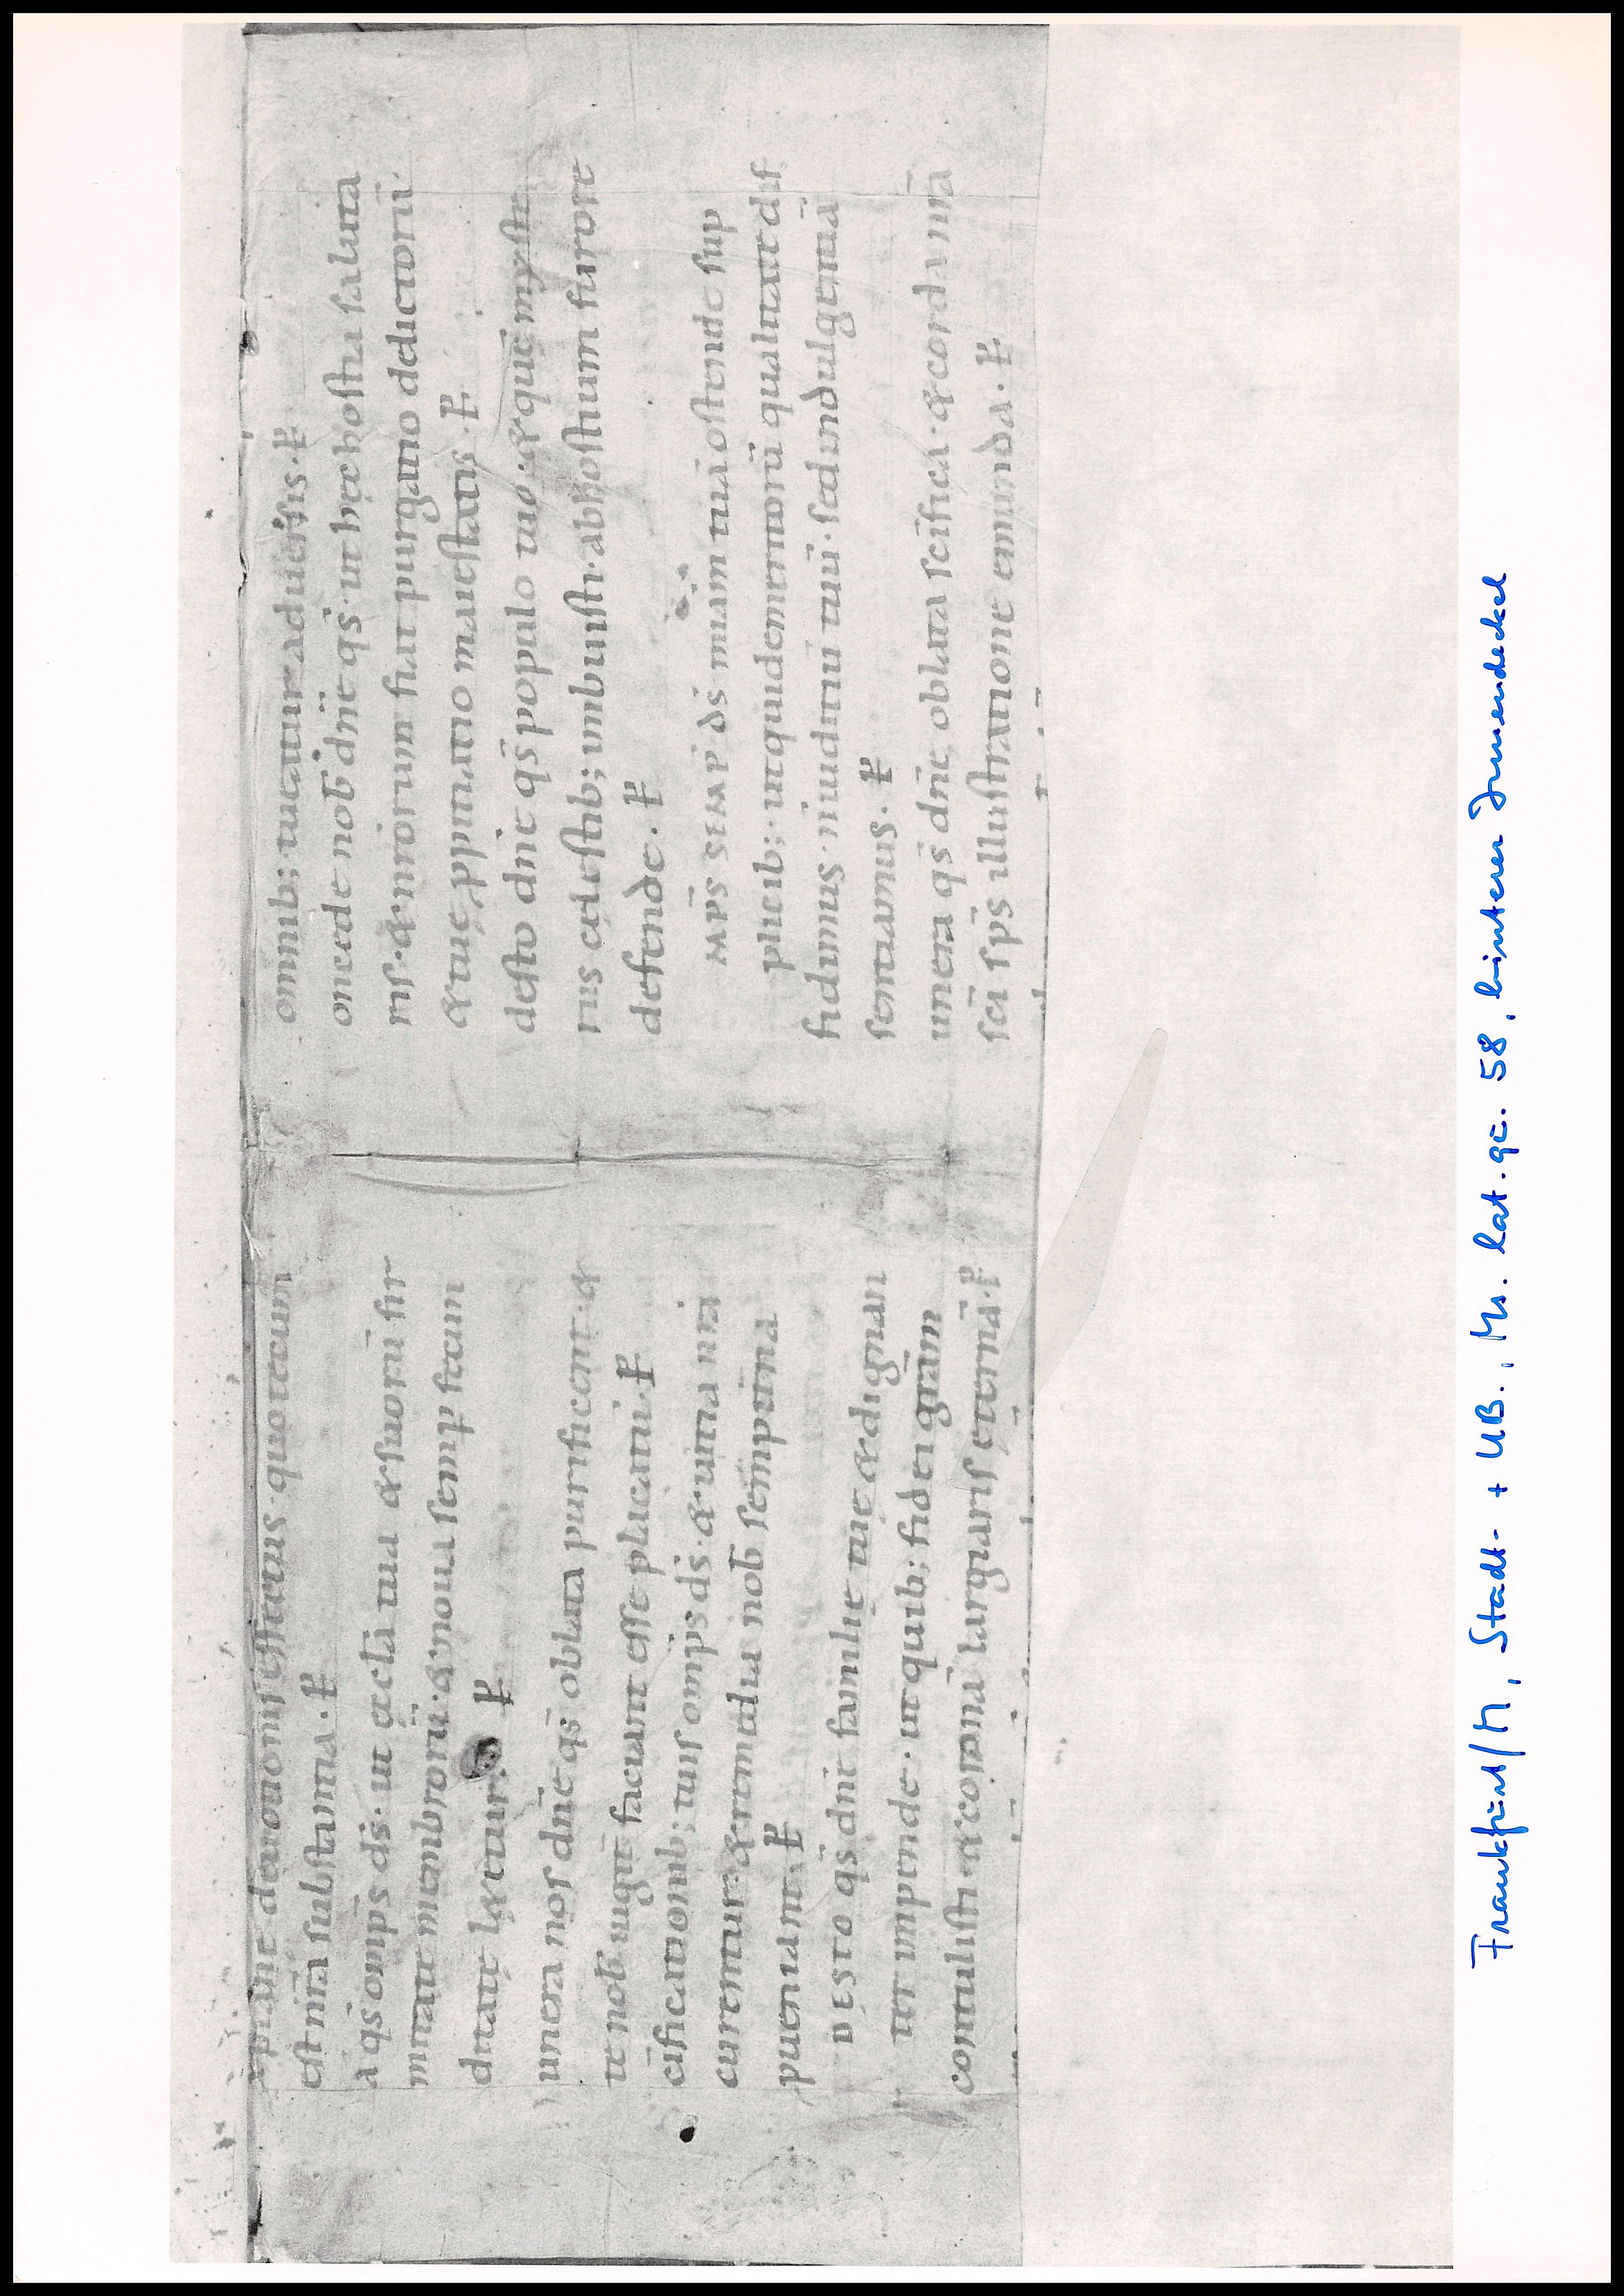 xpiane deuotionis effectus quo tecum
est nr̄a substantia. ꝑ
a qs̄ omp̄s ds̄. ut ęccl̄a tua & suorū fir
mitate membrorū. & noua semꝑ fecun
ditate lętetur. ꝑ
unera nos dn̄e qs̄ oblata purificent. &
te nob̄ iugit̄ faciant esse placatū. ꝑ
c̄ificationib; tuis omp̄s ds̄. & uitia nr̄a
curentur. & remedia nob̄ sempit̄na
ꝓueniant. ꝑ
DESTO qs̄ dn̄e familię tuę & dignan
ter impende. ut quib; fidei gr̄am
contulisti. & coronā largiaris ęternā. ꝑ
omnib; tueatur aduersis. ꝑ
oncede nob̄ dn̄e qs̄. ut hęc hostia saluta
ris. & nr̄orum fiat purgatio delictorū.
& tuę ꝓpitiatio maiestatis. ꝑ
desto dn̄e qs̄ populo tuo. & quē myste
riis cęlestib; imbuisti. ab hostium furore
defende. ꝑ
MP̄S SEMP̄ DS̄ miām tuā ostende sup
plicib;. ut qui de meritorū qualitate dif
fidimus. n̄ iudiciū tuū. sed indulgentiā
sentiamus. ꝑ
unera qs̄ dn̄e oblata sc̄ifica. & corda nr̄a
sc̄i sp̄s illustratione emunda. ꝑ
Frankfurt/M, Stadt- + UB., Ms. lat. qt. 58, hinterer Innendeckel